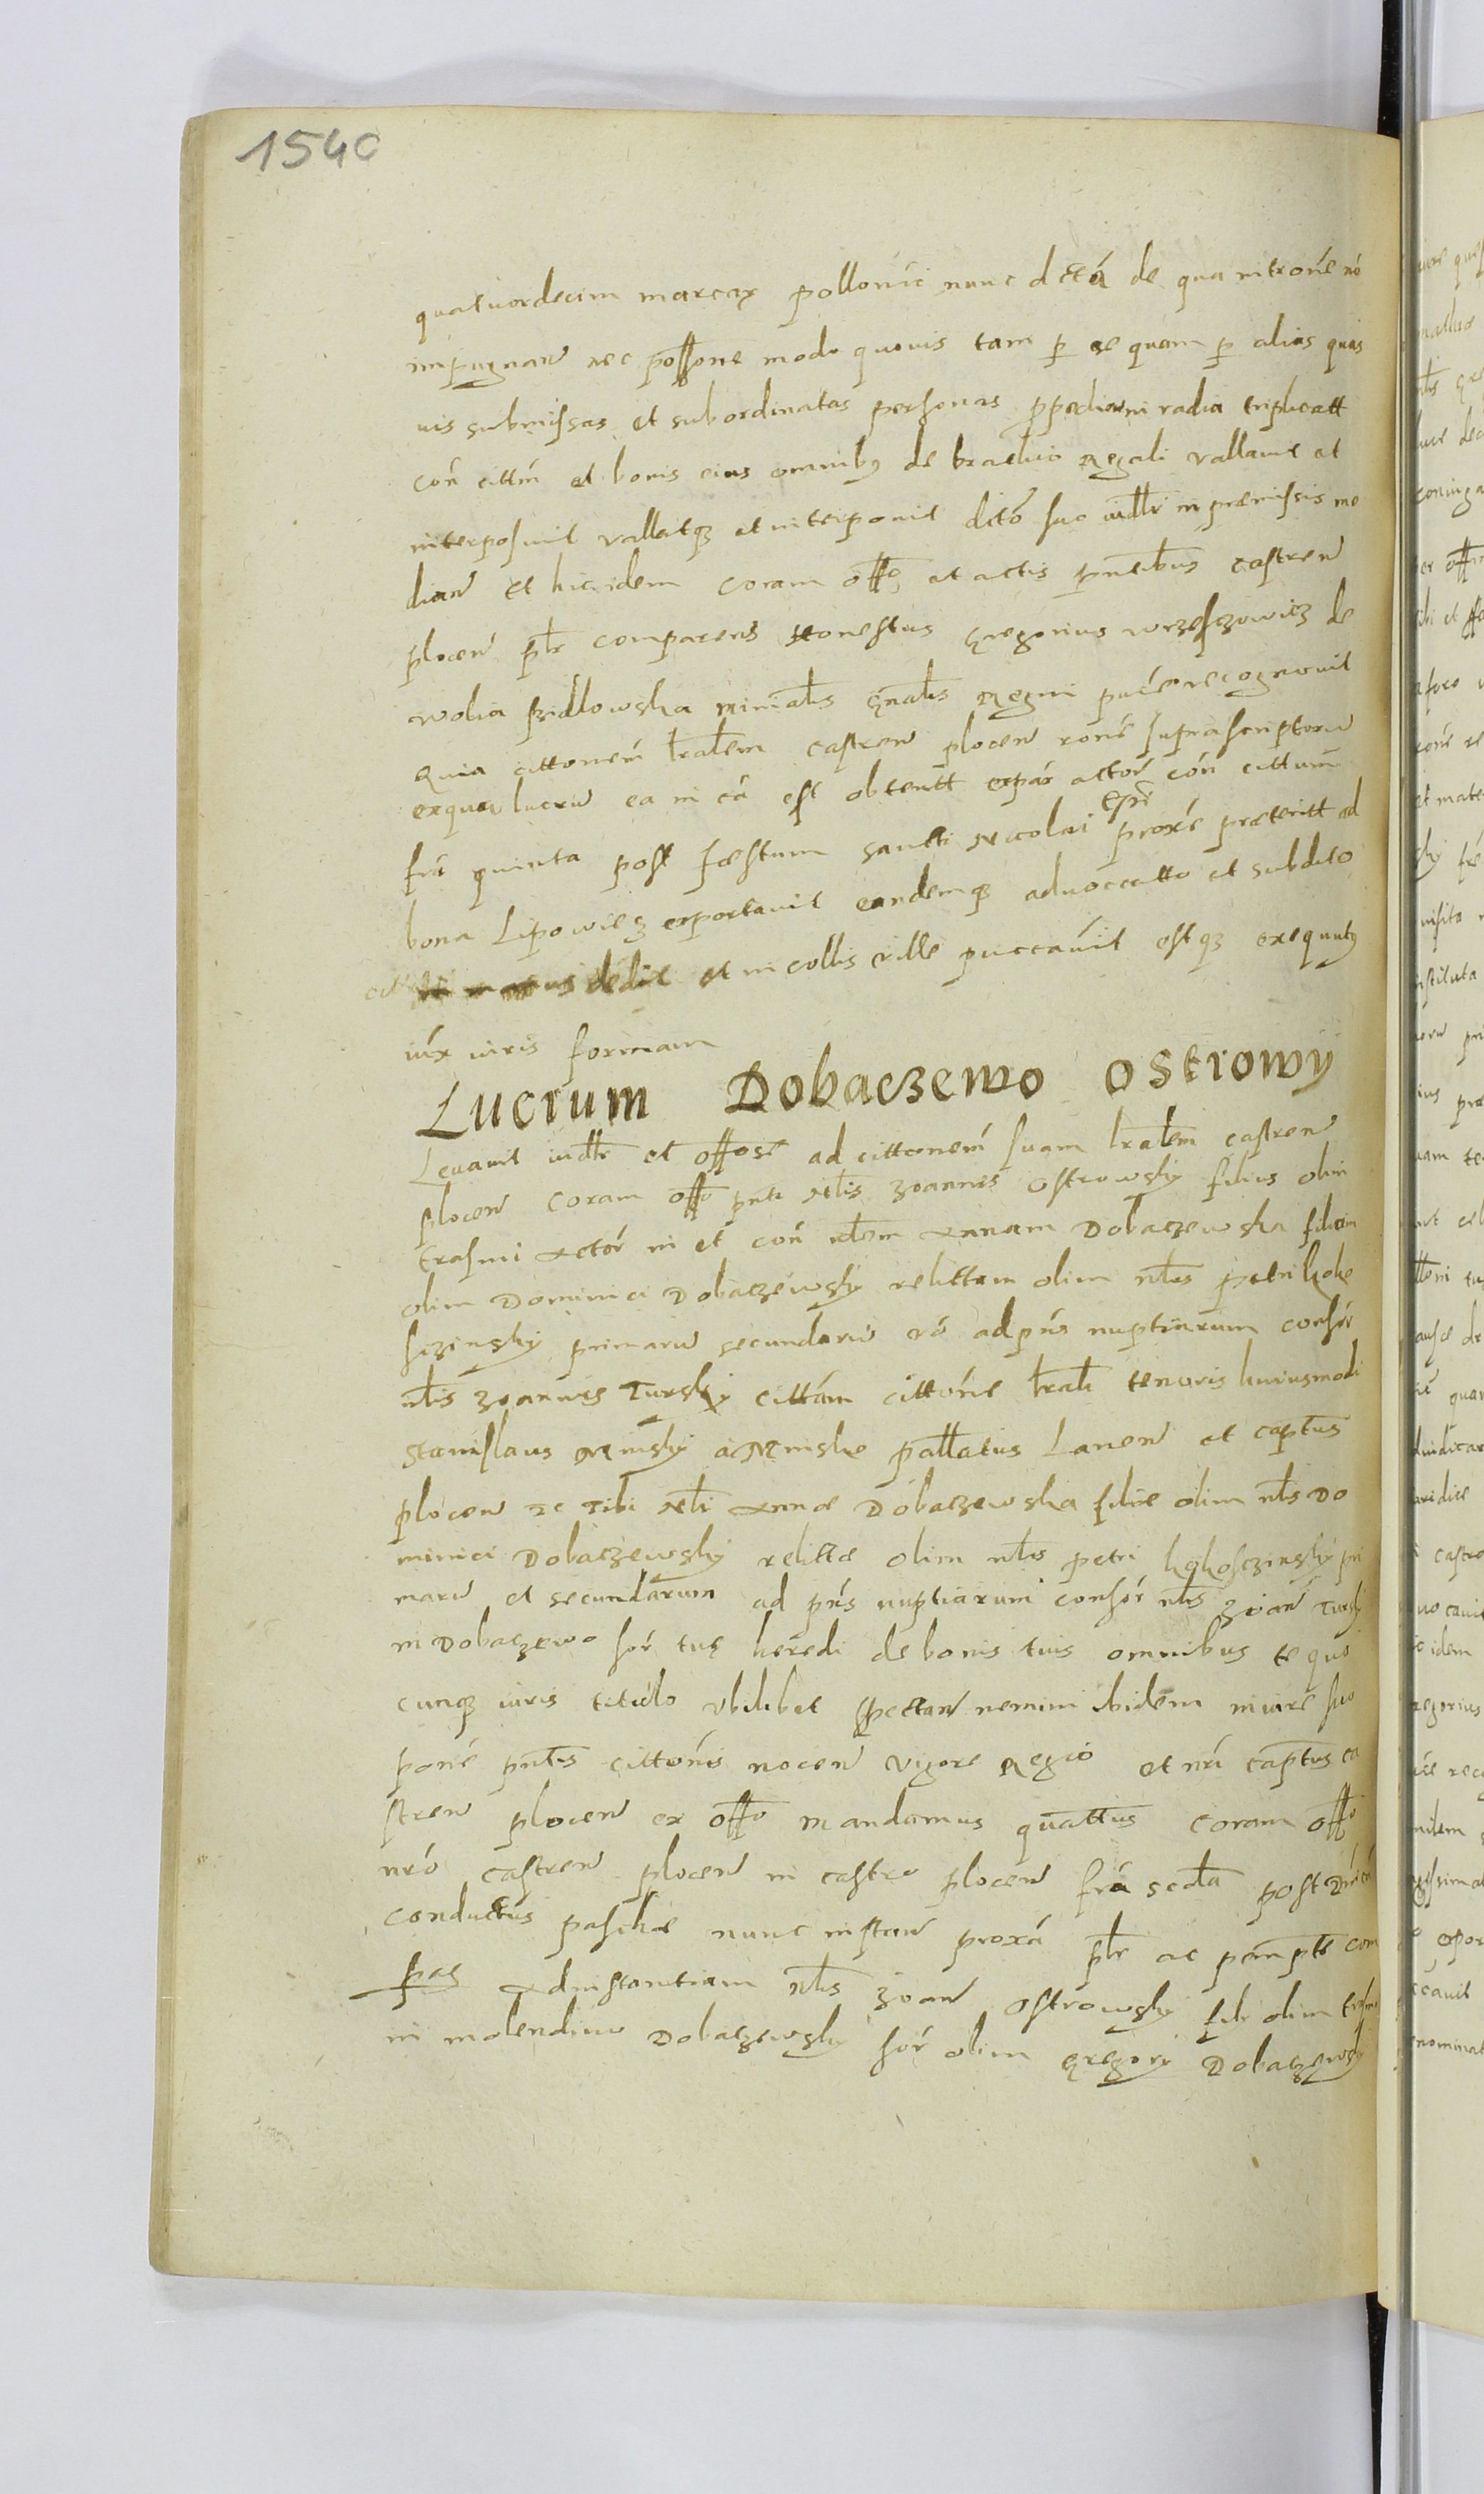 1540
quatuordecim marcar pollonic nunc dctā de qua intronē nō
impugnan nec possone modo quovis tam p se quam p alias quas
vis submissas et subordinatas personas radia triplicatt
con cittm et bonis eius omnibus de brachio Regali vallavit et
interposuit vallatqz et interponit dctō suo iudlr in præmissis me
dian Et hic idem coram offo et actis pntibus castren
plocen plr comparens Honestus Gregorius wrzesczowicz de
wolia Ministlis Gnālis Regni recognovit
Quia cittonem lrālem castren plocen rone suprascriptoru
ex qua lucru ea in cā est obtentt expār actor con cittum
fria quinta post fæstum sancti Nicolai epi proxe præteritt ad
bona Lipowiecz exportavit eandemqz advoccatto et subdito
dedit et in collis ville puccavit estqz exequuty
iux iuris formam
Lucrum Dobaczewo Ostrowy
Levavit iudlr et offose ad cittonem suam lrālem castren
plocen coram offo pnti Nblis Joannes Ostrowsky filius olim
Erasmi Actor in et con nblem Annam Dobaczewska filiam
olim Dominici Dobaczewsky relittam olim nblis petri koko
sczinsky primaru secundaru vō ad pns nuptiarum consor
nblis Joannis Tursky cittam cittone lrāli tenoris huiusmodi
Stanislaus Minsky a Minsko pallatius Lancen et captus
plocen zc Tibi Nbli Annæ Dobaczewska filiæ olim nblis Do
minici Dobaczewsky relittæ olim nblis petri kokosczinsky pri
maru et secundarum ad pns nuptiarum consor nblis Joan Tursky
in Dobaczewo sor tuæ heredi de bonis tuis omnibus te quo
cunqz iuris titulo ubilibet spectan nemini ibidem in iure suo
pone pntis cittonis nocen vigore Regio et nri captus ca
stren plocen ex offo mandamus quattus coram offo
nro castren plocen in castro plocen fria scda post
conductus paschæ nunc instan proxā plr ac pempte com
pas Ad instantiam nblis Joan Ostrowsky filr olim Erasmi
in molendino Dobaczewsky sor olim Gregory Dobaczewsky